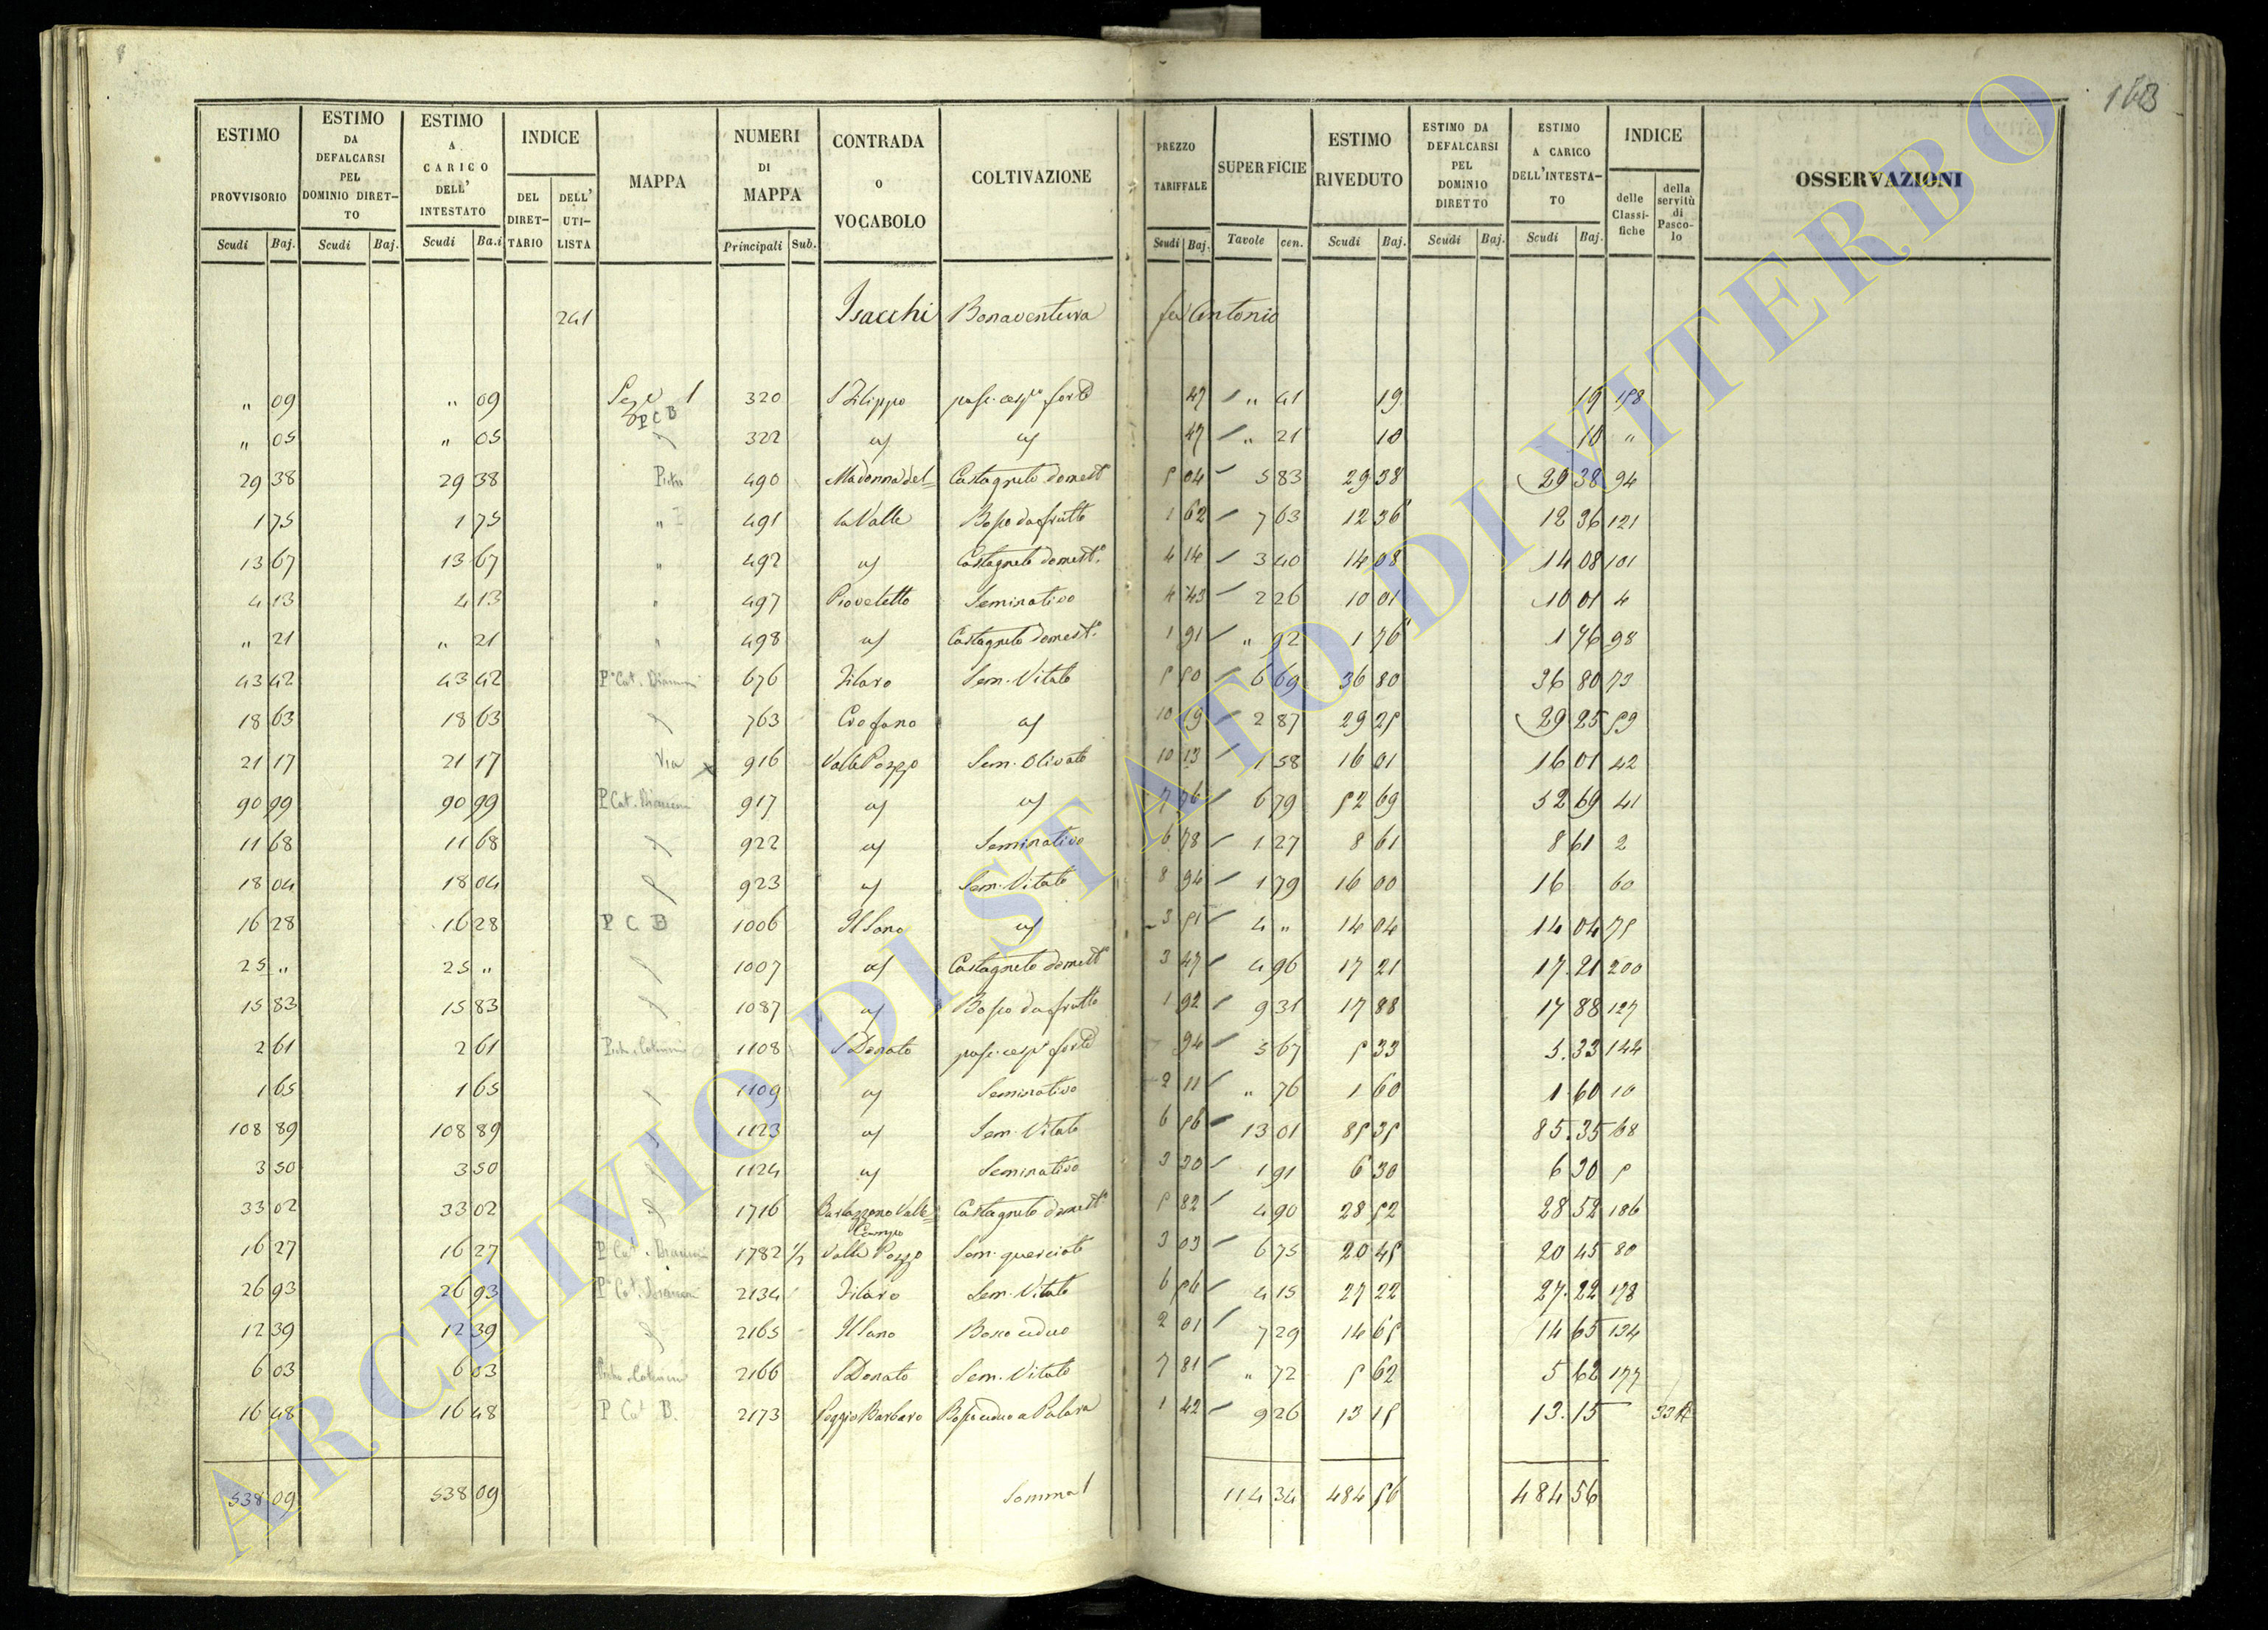 163
ESTIMO PROVVISORIO Scudi Baj. | ESTIMO DA DEFALCARSI PEL DOMINIO DIRET-TO Scudi Baj. | ESTIMO A CARICO DELL' INTESTATO Scudi Ba.i | INDICE DEL DIRET-TARIO DELL' UTI-LISTA | MAPPA | NUMERI DI MAPPA Principali Sub. | CONTRADA O VOCABOLO | COLTIVAZIONE | PREZZO TARIFFALE Scudi Baj. | SUPERFICIE Tavole cen. | ESTIMO RIVEDUTO Scudi Baj. | ESTIMO DA DEFALCARSI PEL DOMINIO DIRETTO Scudi Baj. | ESTIMO A CARICO DELL'INTESTA-TO Scudi Baj. | INDICE delle Classi-fiche della servitù di Pasco-lo | OSSERVAZIONI
241 Isacchi Bonaventura fu Antonio
" 09 " 09 1 320 S Filippo 47 " 41 19 19 158
P C B
" 05 " 05 322 47 " 21 10 10 "
29 38 29 38 490 Madonna del= Castagneto domest 5 04 5 83 29 38 29 38 94
1 75 1 75 " 491 la Valle Bosco da frutto 1 62 7 63 12 36 12 36 121
13 67 13 67 " 492 Castagneto domest. 4 14 3 40 14 08 14 08 101
4 13 4 13 " 497 Seminativo 4 43 2 26 10 01 10 01 4
" 21 " 21 " 498 Castagneto domest. 1 91 " 92 1 76 1 76 98
43 42 43 42 676 Filaro Sem. Vitato 5 50 6 69 36 80 36 80 73
18 63 18 63 763 Crofano 10 19 2 87 29 25 29 25 59
21 17 21 17 Via 916 Valle Pozzo Sem. Olivato 10 13 1 58 16 01 16 01 42
90 99 90 99 917 7 76 6 79 52 69 52 69 41
11 68 11 68 922 Seminativo 6 78 1 27 8 61 8 61 2
18 04 18 04 923 Sem. Vitato 8 94 1 79 16 00 16 60
16 28 16 28 P C B 1006 Il Sano 3 51 4 " 14 04 14 04 75
25 " 25 " 1007 Castagneto domest 3 47 4 96 17 21 17.21 200
15 83 15 83 1087 Bosco da frutto 1 92 9 31 17 88 17 88 127
2 61 2 61 1108 S Donato 94 5 67 5 33 5.33 144
1 65 1 65 1109 Seminativo 2 11 " 76 1 60 1 60 10
108 89 108 89 1123 Sem. Vitato 6 56 13 01 85 35 85.35 68
3 50 3 50 1124 Seminativo 3 30 1 91 6 30 6 30 5
33 02 33 02 1716 Castagneto domest 5 82 4 90 28 52 28 52 186
Campo
16 27 16 27 1782 Valle Pozzo Sem. querciato 3 03 6 75 20 45 20 45 80
26 93 26 93 2134 Filaro Sem. Vitato 6 56 4 15 27 22 27.22 178
12 39 12 39 2165 Il Sano Bosco ceduo 2 01 7 29 14 65 14 65 134
6 03 6 03 2166 S Donato Sem. Vitato 7 81 " 72 5 62 5 62 177
16 48 16 48 2173 Poggio Barbaro Bosco ceduo a Palara 1 42 9 26 13 15 13.15 33
538 09 538 09 Somma 114 34 484 56 484 56
ARCHIVIO DI STATO DI VITERBO